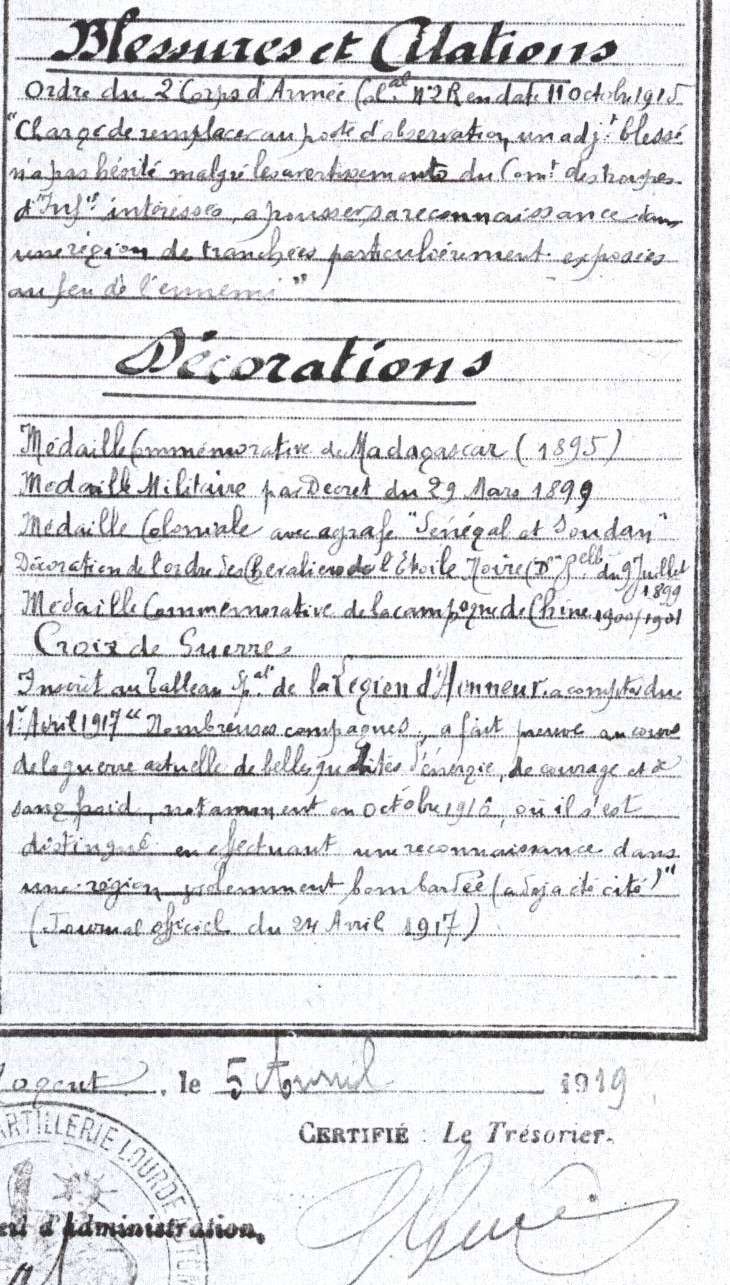 Blessures et Citations
Ordre du 2e Corps d'Armée Colal N°2R en date 11 octobre 1915
"Chargé de remplacer au poste d'observation, un adjt blessé
n'a pas hésité malgré les avertissements du Comt des troupes
d'Infie intéressés, a pousser sa reconnaissance dans
une région de tranchées particulièrement exposées
au feu de l'ennemi"
Décorations
Médaille Commémorative de Madagascar (1895)
Médaille Militaire par Décret du 29 Mars 1899
Médaille Coloniale avec agrafe "Sénégal et Soudan"
Décoration de l'ordre des Chevaliers de l'Etoile Noire du 9 Juillet
1899
Médaille Commémorative de la campagne de Chine 1900/1901
Croix de Guerre
Inscrit au Tableau Spal de la Légion d'Honneur a compter du
1er Avril 1917 "Nombreuses campagnes, a fait preuve au cours
de la guerre actuelle de belles qualités d'énergie, de courage et de
sang froid, notamment en octobre 1916, où il s'est
distingué en effectuant une reconnaissance dans
une région violemment bombardée (a déja été cité)"
(Journal officiel du 24 Avril 1917)
, le 5 Avril 1919
CERTIFIÉ : Le Trésorier.
ARTILLERIE LOURDE
d'Administration,